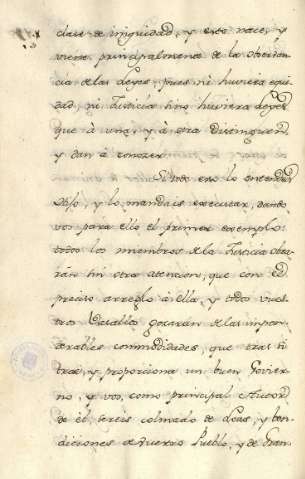 clase de iniquidad, y esto nace, y
viene principalmente de la obserban-
cia de las Leyes, pues ni huviera equi-
dad, ni Justicia sino huviera Leyes
que à una, y à otra distinguen,
y dan à conocer.
Si todo esto lo entended
Vos, y lo mandais executar, dando
vos para ello el primer exemplo:
todos los miembros de la Justicia obra-
rán sin otra atencion, que con el
preciso arreglo à ella, y todos vues-
tros Vasallos gozarán de las impon-
derables commodidades, que tras si
trae, y proporciona un buen Govier-
no, y vos, como principal Autor
de el sereis colmado de Loas, y ben-
diciones de vuestro Pueblo, y de